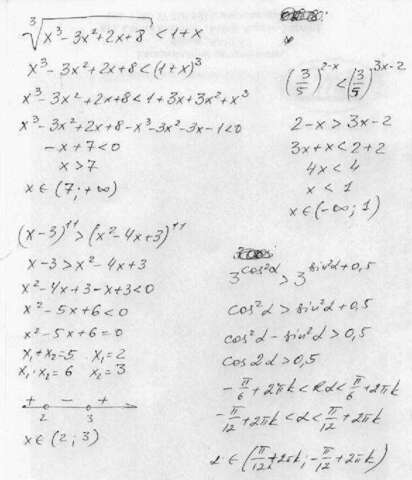 ∛(x³-3x²+2x+8) < 1+x
x³-3x²+2x+8 < (1+x)³
x³-3x²+2x+8 < 1+3x+3x²+x³
x³-3x²+2x+8-x³-3x²-3x-1<0
-x+7<0
x>7
x∈(7;+∞)
(x-3)¹¹ > (x²-4x+3)¹¹
x-3 > x²-4x+3
x²-4x+3-x+3<0
x²-5x+6<0
x²-5x+6=0
x₁+x₂=5 x₁=2
x₁·x₂=6 x₂=3
+ - +
2 3
x∈(2;3)
(3/5)^(2-x) < (3/5)^(3x-2)
2-x > 3x-2
3x+x<2+2
4x<4
x<1
x∈(-∞;1)
3^(cos²α) > 3^(sin²α+0,5)
cos²α > sin²α+0,5
cos²α - sin²α > 0,5
cos2α > 0,5
-π/6+2πk < 2α < π/6+2πk
-π/12+2πk < α < π/12+2πk
α∈(π/12+2πk; -π/12+2πk)